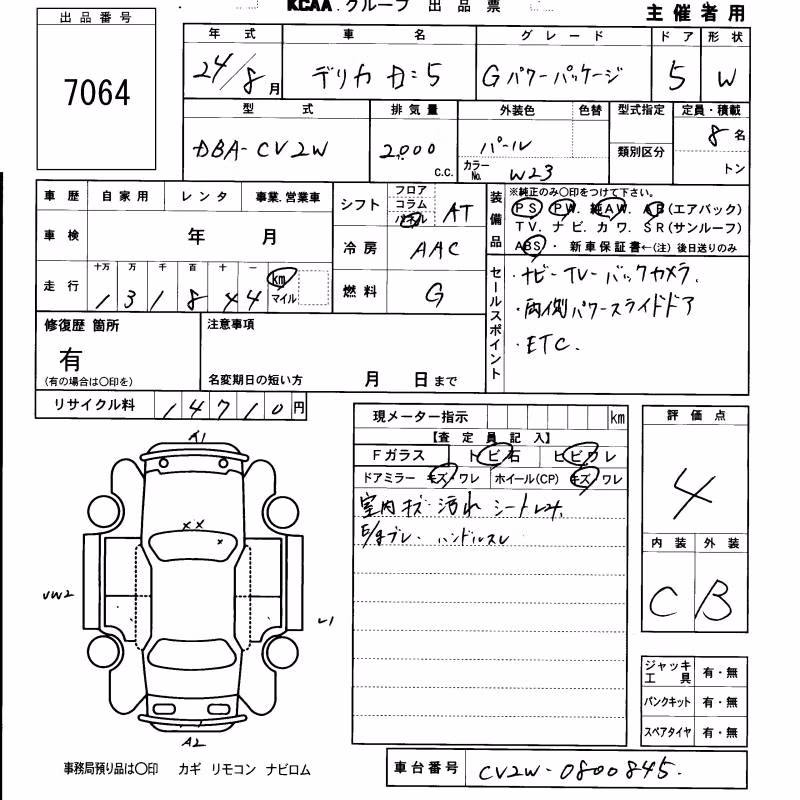 KCAA グループ 出 品 票
主催者用
出品番号
7064
年 式 車 名 グ レ ー ド ドア 形状
24/8月 デリカ D:5 Gパワーパッケージ 5 W
型 式 排気量 外装色 色替 型式指定 定員・積載
DBA-CV2W 2000 c.c. パール 8名
カラーNo. W23 類別区分 トン
車歴 自家用 レンタ 事業.営業車
車検 年 月
走行 十万 万 千 百 十 一
131844 km マイル
シフト フロア コラム パネル AT
冷房 AAC
燃料 G
装備品 ※純正のみ〇印をつけて下さい。
PS. PW. 純AW. AB(エアバック)
TV. ナビ. カワ. SR(サンルーフ)
ABS ・ 新車保証書←(注) 後日送りのみ
セールスポイント
・ナビーTVーバックカメラ.
・両側パワースライドドア
・ETC.
修復歴 箇所
有
(有の場合は〇印を)
注意事項
名変期日の短い方 月 日まで
リサイクル料 14710円
現メーター指示 km
【査 定 員 記 入】
Fガラス トビ石 ヒビワレ
ドアミラー キズ・ワレ ホイール(CP) キズ・ワレ
室内キズ・汚れ シート
ハンドルスレ
評価点
4
内装 外装
C B
A1
××
×
UW2
U1
A2
ジャッキ工具 有・無
パンクキット 有・無
スペアタイヤ 有・無
事務局預り品は〇印 カギ リモコン ナビロム
車台番号 CV2W-0800845.